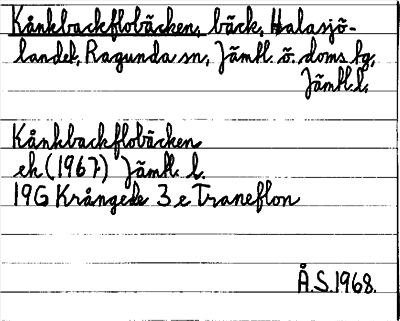 Kånkbackflobäcken, bäck, Halasjö-
landet, Ragunda sn, Jämtl. ö. doms.hg,
Jämtl.l.
Kånkbackflobäcken
ek (1967) Jämtl. l.
19G Krångede 3 e Traneflon
Å.S.1968.